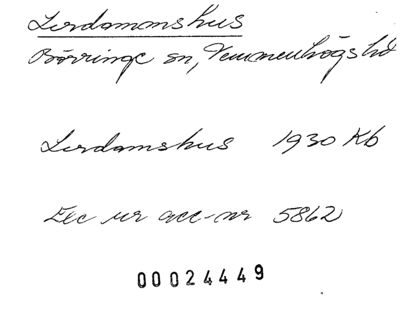 Lerdammshus
Börringe sn, Vemmenhögs hd
Lerdamshus 1930 Kb
Exc ur acc-nr 5862
00024449